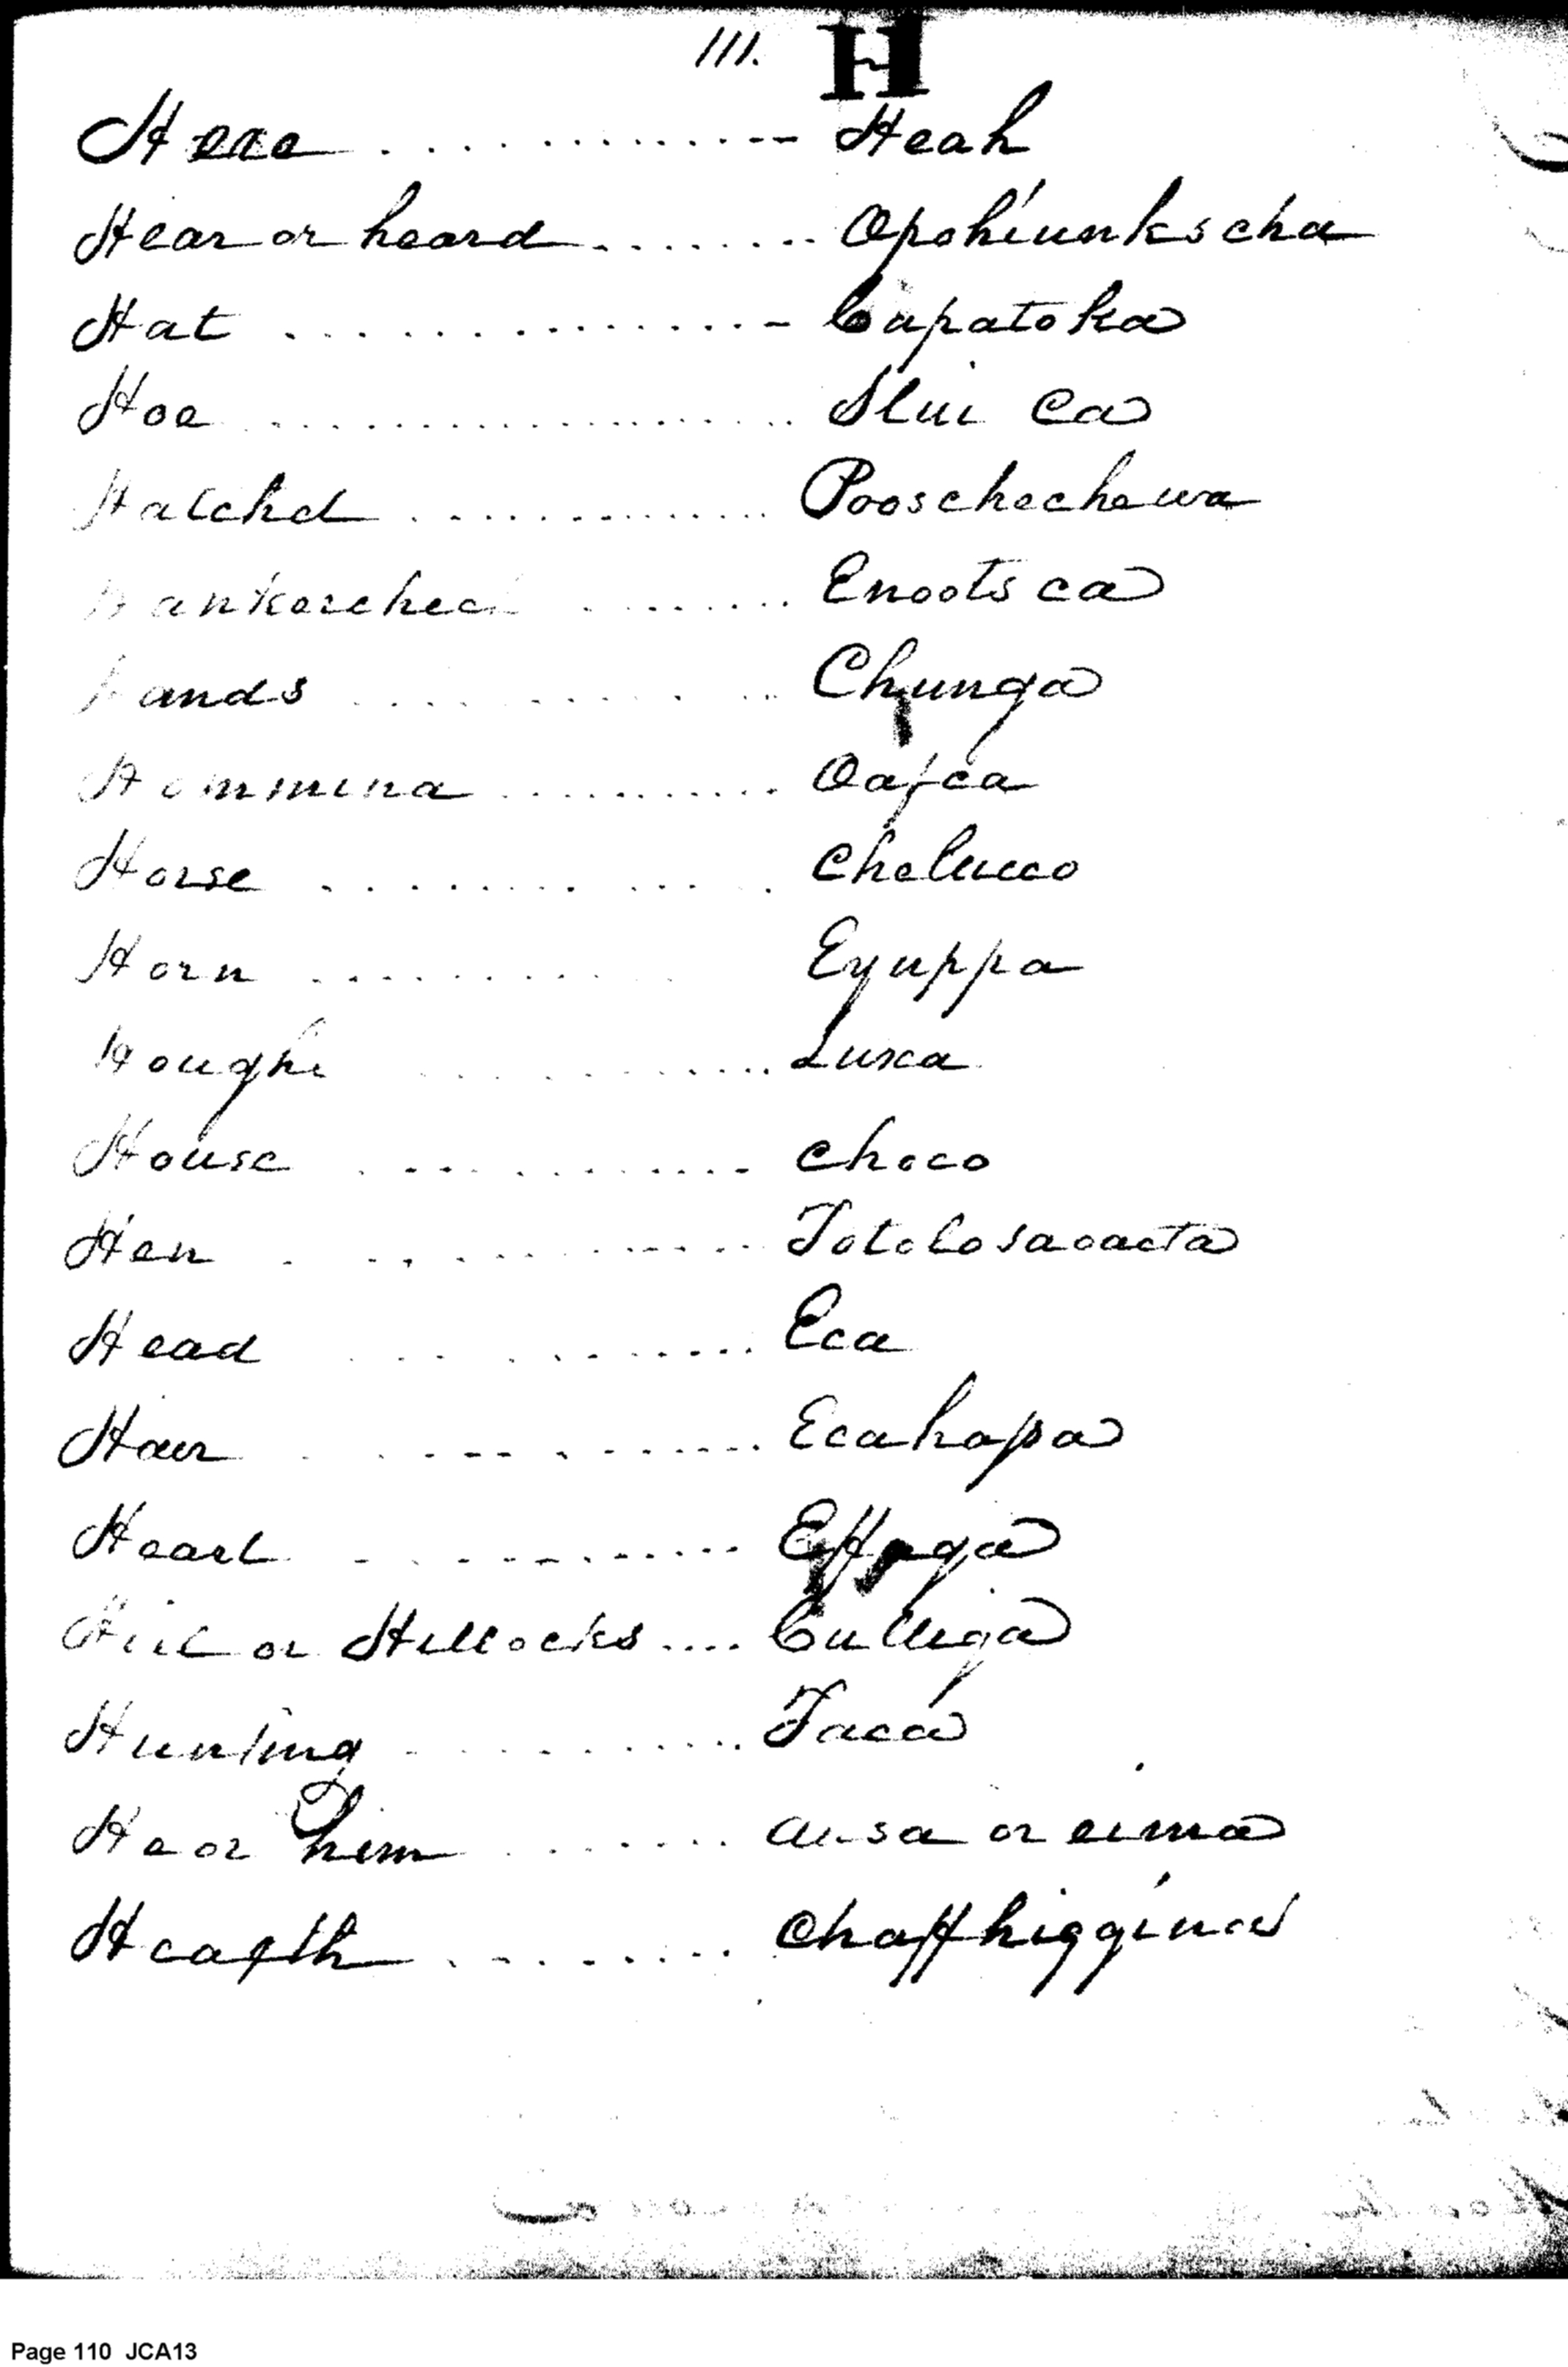 111. H
Here ............-- Heah
Hear or heard ........ Opohiunkscha
Hat ..............- Capatoka
Hoe .................. Slui ca
Hatchd ............. Pooschechewa
Hankerchec ........ Enootsca
hands .......... Chunga
Hommina .......... Oafca
Horse .......... Chelucco
Horn ......... Eyuppa
Houghe .......... Luxa
House ........... Choco
Hen ........... Totolosaoacta
Head .......... Eca
Hair ........... Ecahapa
Heart ........... Effaga
Hill or Hillocks .... Culliga
Hunting .......... Faca
He or him ...... aisa or eima
Heafth ........ Chaffhiggina
Page 110 JCA13